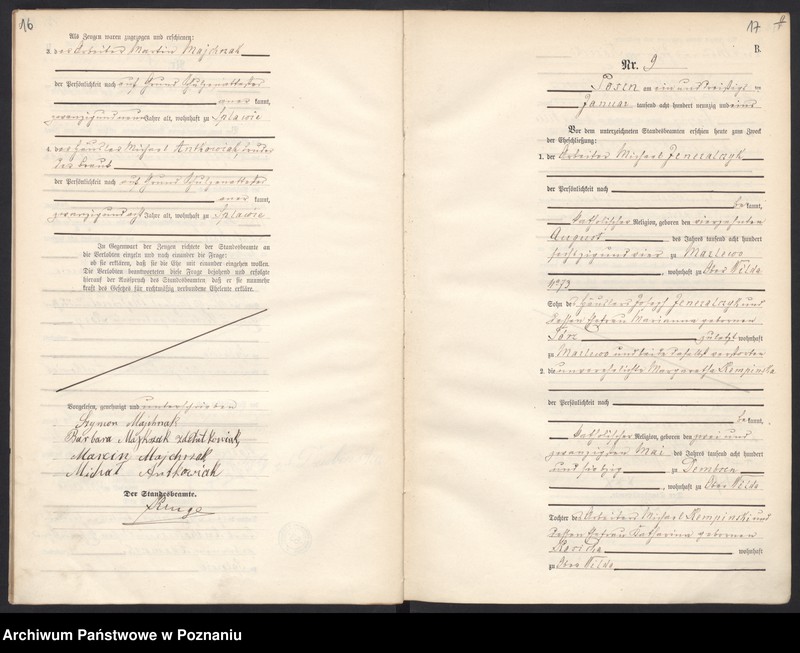 16
Als Zeugen waren zugezogen und erschienen:
3. der Arbeiter Martin Majchrzak
der Persönlichkeit nach auf Grund Schulzenattestes
aner kannt,
zwanzig und neun Jahre alt, wohnhaft zu Splawie
4. der Häusler Michael Antkowiak, Bruder
der Braut
der Persönlichkeit nach auf Grund Schulzenattestes
aner kannt,
zwanzig und acht Jahre alt, wohnhaft zu Splawie
In Gegenwart der Zeugen richtete der Standesbeamte an
die Verlobten einzeln und nach einander die Frage:
ob sie erklären, daß sie die Ehe mit einander eingehen wollen.
Die Verlobten beantworteten diese Frage bejahend und erfolgte
hierauf der Ausspruch des Standesbeamten, daß er sie nunmehr
kraft des Gesetzes für rechtmäßig verbundene Eheleute erkläre.
Vorgelesen, genehmigt und unterschrieben
Szymon Majchrzak
Barbara Majchrzak z d Antkowiak
Marcin Majchrzak
Michał Antkowiak
Der Standesbeamte.
17
B.
Nr. 9
Posen am ein und dreißigsten
Januar tausend acht hundert neunzig und eins
Vor dem unterzeichneten Standesbeamten erschien heute zum Zweck
der Eheschließung:
1. der Arbeiter Michael Jeneralczyk
der Persönlichkeit nach
be kannt,
katholischer Religion, geboren den vierzehnten
August des Jahres tausend acht hundert
sechzig und vier zu Marlewo
, wohnhaft zu Ober Wilda
No 73
Sohn des Häuslers Joseph Jeneralczyk und
dessen Ehefrau Marianna geborenen
zuletzt wohnhaft
zu Marlewo und beide daselbst verstorben
2. die unverehelichte Margaretha Rempinska
der Persönlichkeit nach
be kannt,
katholischer Religion, geboren den zwei und
zwanzigsten Mai des Jahres tausend acht hundert
und siebzig zu Dembsen
, wohnhaft zu Ober Wilda
Tochter des Arbeiters Michael Rempinski und
dessen Ehefrau Katharina geborenen
wohnhaft
zu Ober Wilda
Archiwum Państwowe w Poznaniu